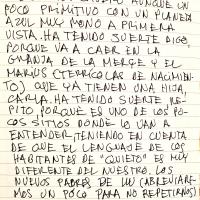 POCO PRIMITIVO CON UN PLANETA
AZUL MUY MONO A PRIMERA
VISTA. HA TENIDO SUERTE DIGO,
PORQUE VA A CAER EN LA
GRANJA DE LA MERGE Y EL
MARIUS (TERRÍCOLAS DE NACIMIEN-
TO) QUE YA TIENEN UNA HIJA,
CARLA. HA TENIDO SUERTE, RE-
PITO, PORQUE ES UNO DE LOS PO-
COS SITIOS DONDE LO VAN A
ENTENDER, TENIENDO EN CUENTA
DE QUE EL LENGUAJE DE LOS
HABITANTES DE "QUIETO" ES MUY
DIFERENTE DEL NUESTRO. LOS
NUEVOS PADRES DE UN (ABREVIARE-
MOS UN POCO PARA NO REPETIRNOS)